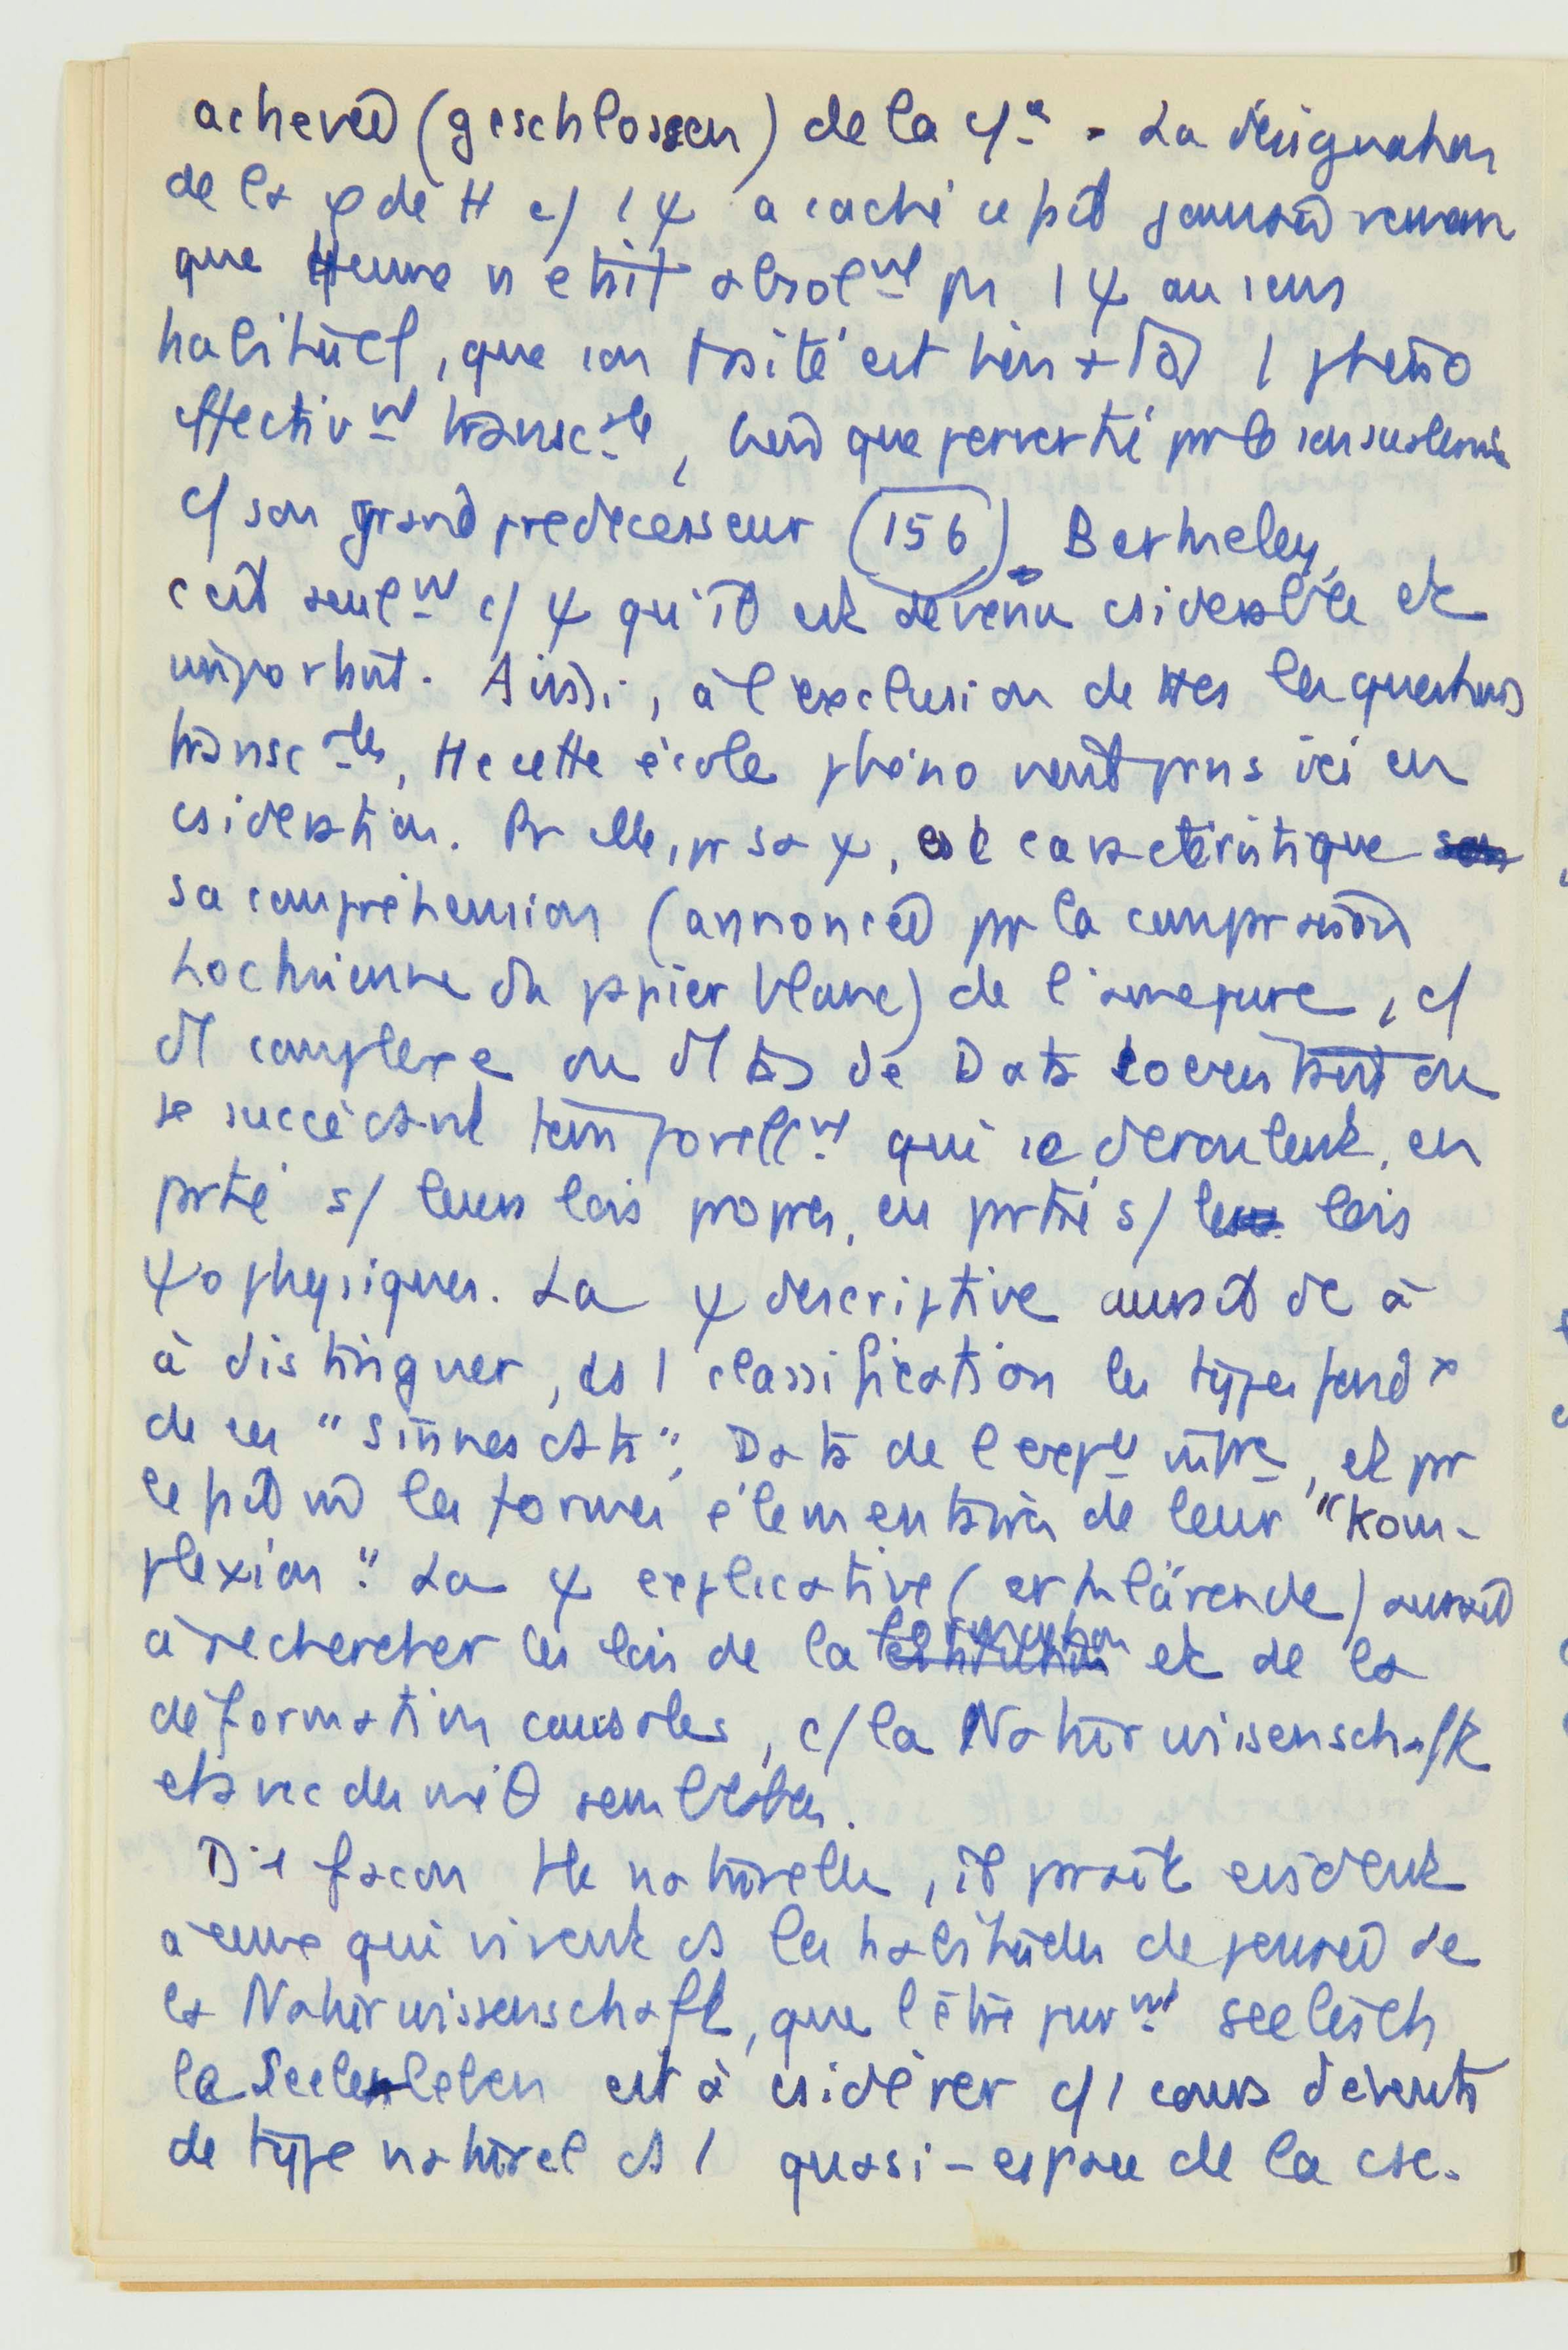 achevée (geschlossen) de la c/ce. La désignation
de la φ de H c/ 1 ψ a caché ce fait
que Hume n'était absolnt pr 1 ψ au sens
habituel, que son traité est bien 1 phéno
effectivnt transcale, bien que pervertie pr le sensualisme
c/ son grand prédécesseur (156). Berkeley,
c'est seulnt c/ ψ qu'il est devenu csidérable et
important. Aussi, à l'exclusion de ttes les questions
transcales, tte cette école phéno vient prns ici en
csidération. Pr elle, pr sa ψ, est caractéristique
sa compréhension (annoncée pr la comparaison
Lockienne du papier blanc) de l'âme pure, c/
1 complexe ou 1 tas de Data coexistant ou
se succédant temporellnt qui se déroulent, en
prtie s/ leurs lois propres, en prtie s/ lois
ψophysiques. La ψ descriptive aurait dc à
à distinguer, ds 1 classification les types fondx
de ces "Sinnesdata", Data de l'expce intre, et pr
les formes élémentaires de leur "Kom-
plexion". La ψ explicative (erklärende) aurait
à rechercher les lois de la formation et de la
déformation causales, c/ la Naturwissenschaft
et avec des méθ semblables.
D'1 façon tte naturelle, il prait évident
à ceux qui vivent ds les habitudes de pensée de
la Naturwissenschaft, que l'être purnt seelisch
le Seelenleben est à csidérer c/ 1 cours d'évents
de type naturel ds 1 quasi-espace de la csc.